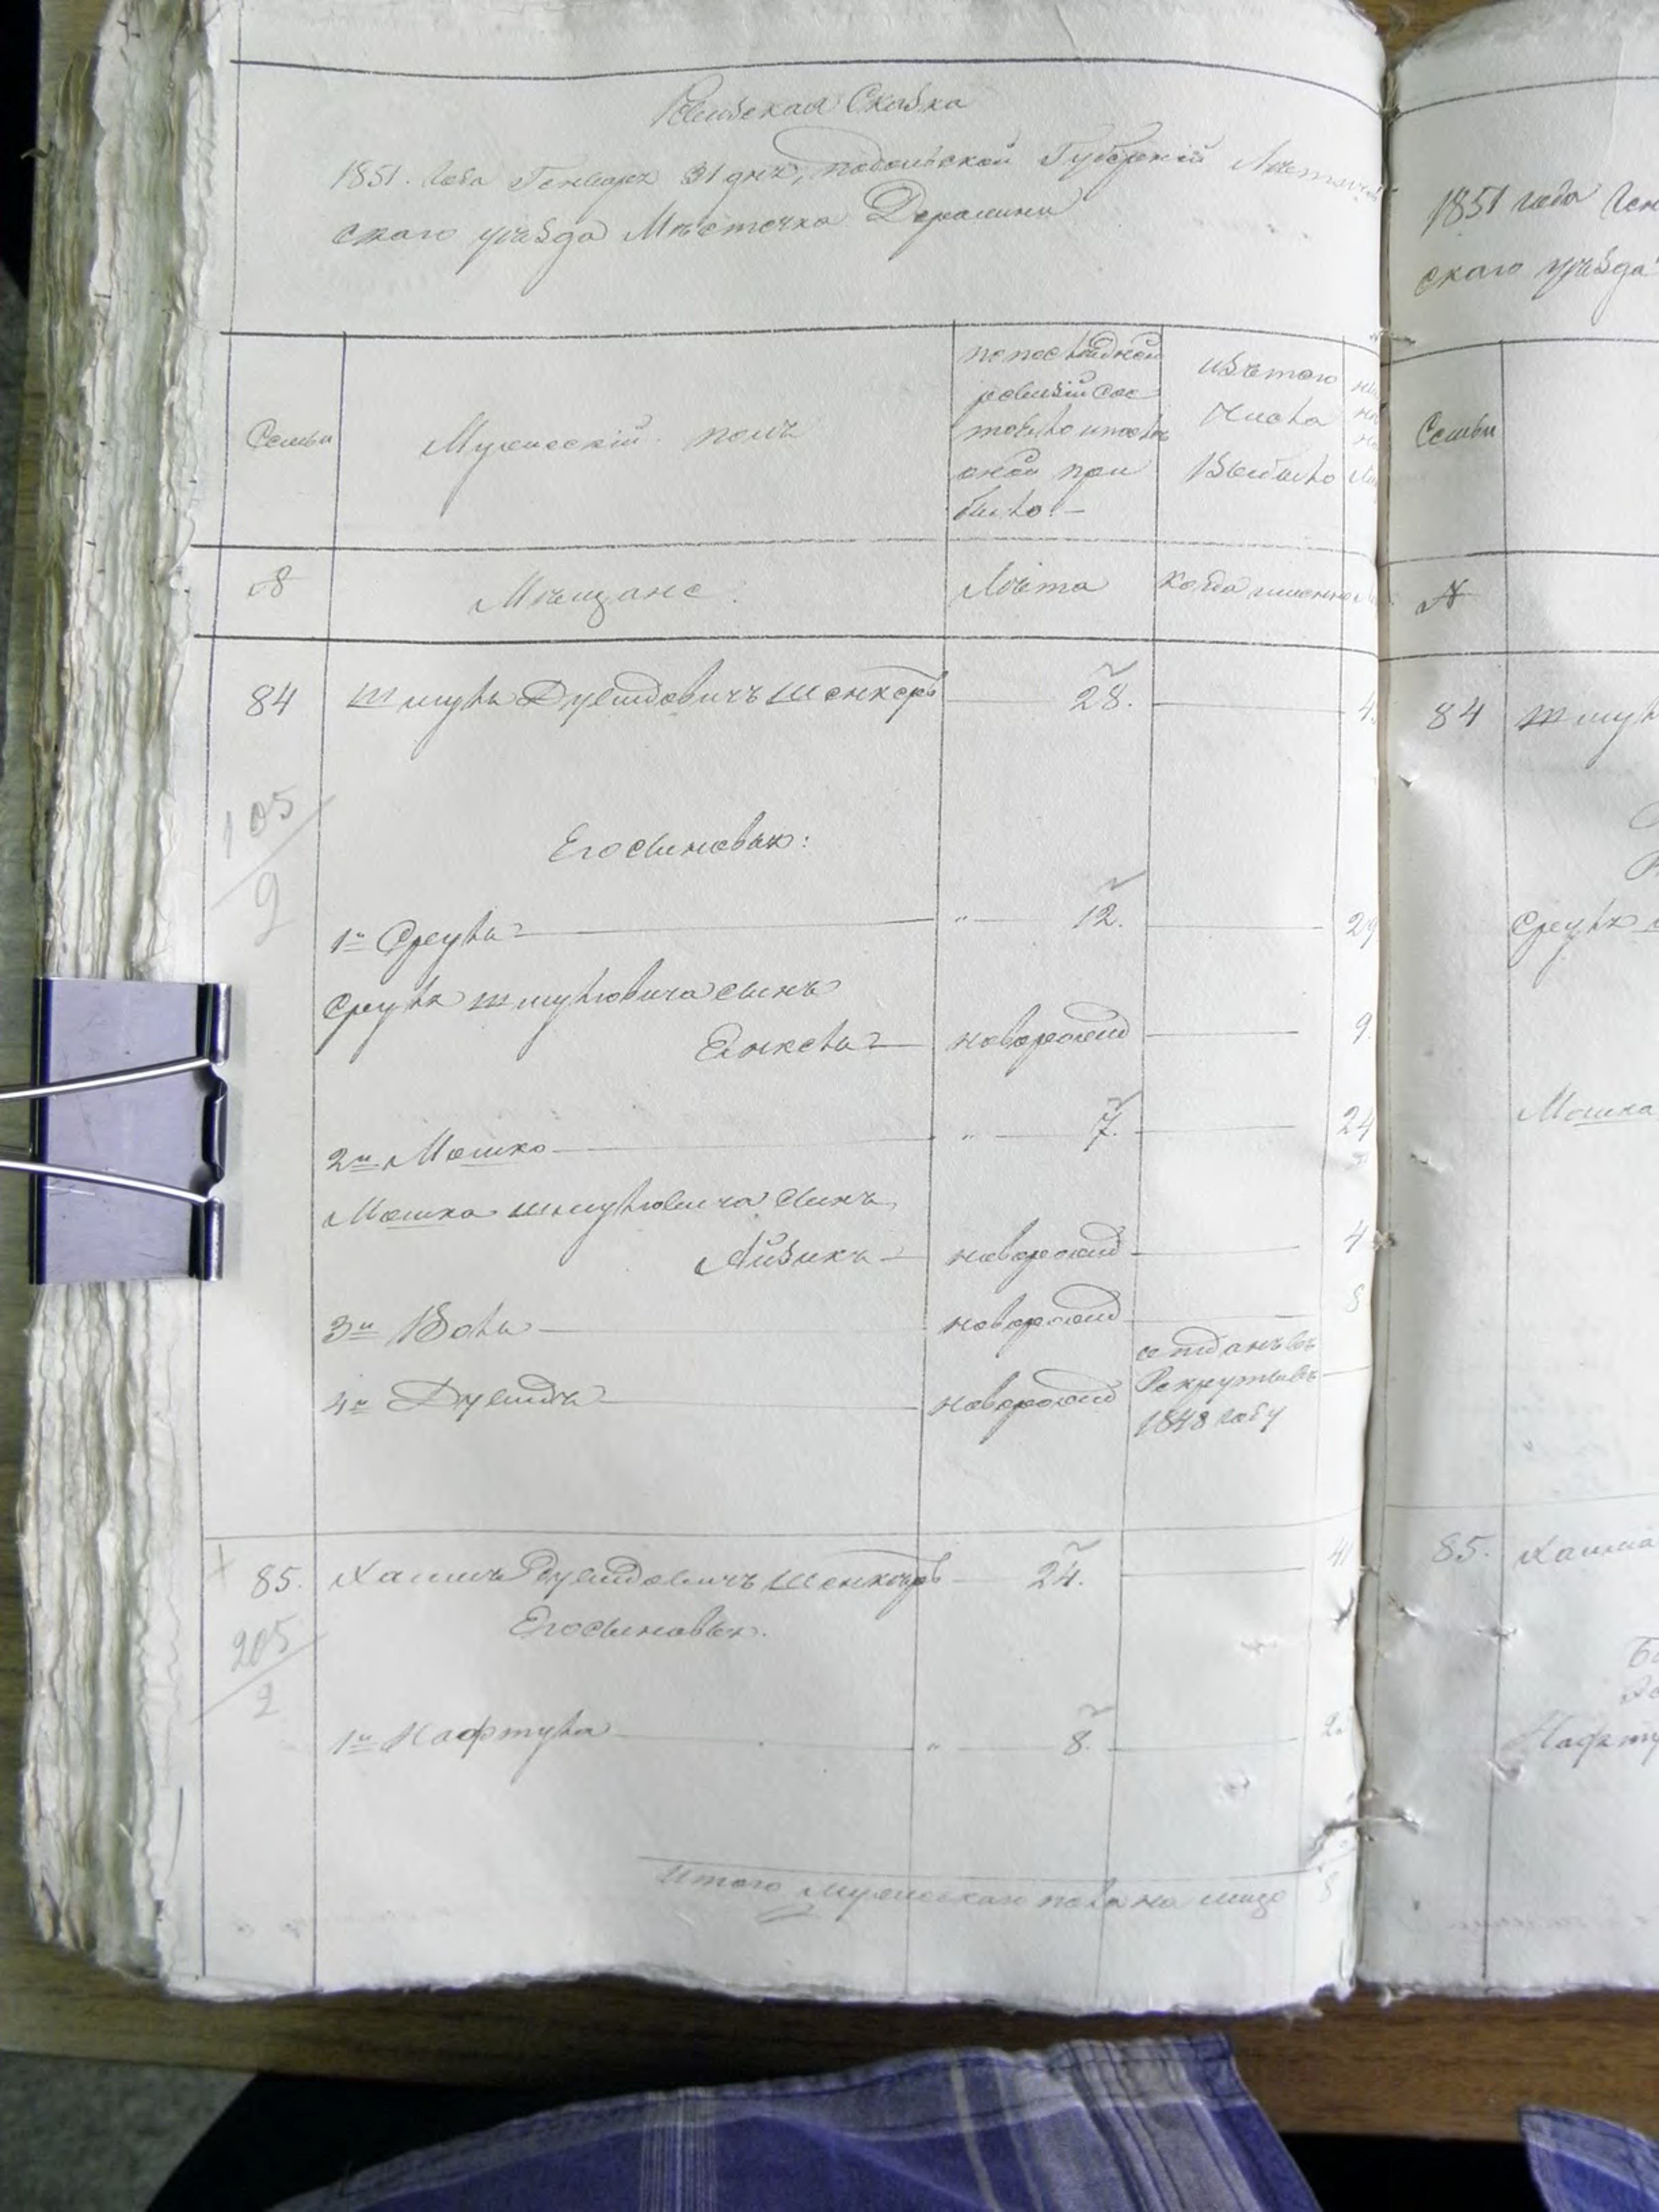 Ревизская Сказка
1851. Года Генваря 31 дня, подольской Губерніи Летичев
скаго уѣзда Мѣстечка Деражни
Семьи
Мужескій полъ
по последней
ревизіи сос
тояло и после
оной при
было. —
изъ того
Числа
Выбыло
№
Мѣщане
Лѣта
Когда именно
84
Шмуль Дувидовичъ Шенкеръ
28.
105/2
Его сыновья:
1й Сруль
12.
Сруля Шмулевича сынъ
новорожд
9
2й Мошко
7.
24
Мошка Шмулевича сынъ
Айзикъ
новорожд
4
3й Волъ
новорожд
4й Дувидъ
новорожд
отданъ въ
Рекруты въ
1848 году
85.
Хаимъ Дувидовичъ Шенкеръ
24.
41
Его сыновья.
205/2
1й Нафтула
8.
Итого мужескаго пола на лицо
8
1851 года Ген
скаго уѣзда
Семьи
№
84
Шмул
Сруля
Мошка
85.
Хаима
Нафту